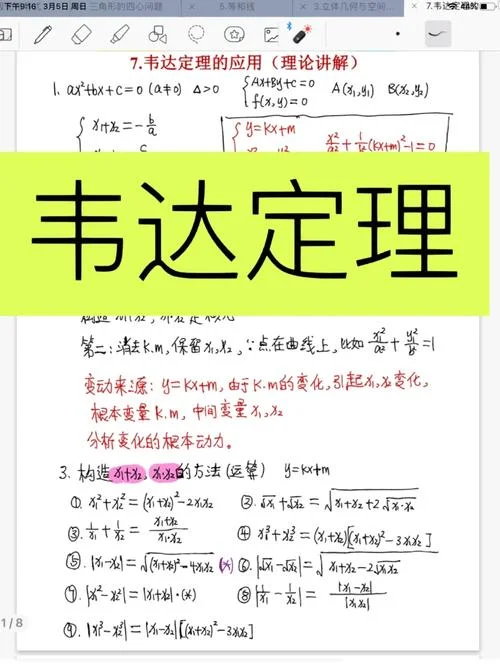 下午9:16 3月5日 周日
三角形的四心问题 5.等和线 3.立体几何与空间 × 7.韦达定理的
7.韦达定理的应用（理论讲解）
1. ax²+bx+c=0 (a≠0) Δ>0 { Ax+By+C=0 A(x₁,y₁) B(x₂,y₂)
f(x,y)=0
{ x₁+x₂=-b/a { y=kx+m x²/a²+1/b²(kx+m)²-1=0
韦达定理
第二：消去k.m，保留x₁,x₂，∵点在曲线上，比如x₁²/a²+y₁²/b²=1
变动来源：y=kx+m，由于k.m的变化，引起x₁,x₂变化，
根本变量k.m，中间变量x₁,x₂
分析变化的根本动力。
3. 构造x₁+x₂, x₁x₂的方法(运算) y=kx+m
①. x₁²+x₂²=(x₁+x₂)²-2x₁x₂ ②. √x₁+√x₂=√(x₁+x₂+2√(x₁·x₂))
③. 1/x₁+1/x₂=(x₁+x₂)/(x₁·x₂) ④ x₁³+x₂³=(x₁+x₂)[(x₁+x₂)²-3x₁x₂]
⑤. |x₁-x₂|=√((x₁+x₂)²-4x₁x₂) (*) ⑥. |√x₁-√x₂|=√(x₁+x₂-2√(x₁x₂))
⑦. |x₁²-x₂²|=|x₁+x₂|·(*) ⑧ |1/x₁-1/x₂|=|x₁-x₂|/|x₁x₂|
⑨. |x₁³-x₂³|=|x₁-x₂|[(x₁+x₂)²-3x₁x₂]
1/8